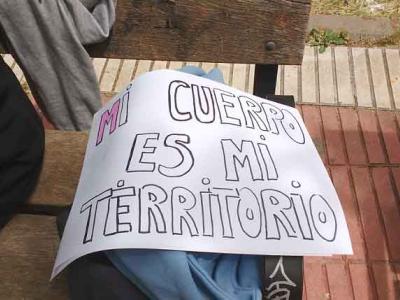 MI CUERPO
ES MI
TERRITORIO